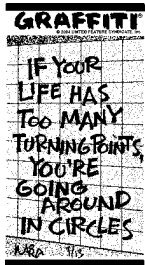 GRAFFITI®
© 2004 UNITED FEATURE SYNDICATE, Inc.
IF YOUR
LIFE HAS
TOO MANY
TURNING POINTS,
YOU'RE
GOING
AROUND
IN CIRCLES